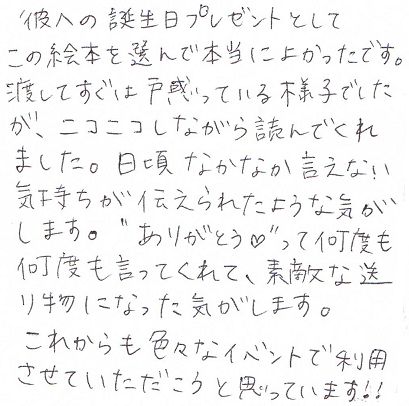 彼への誕生日プレゼントとして
この絵本を選んで本当によかったです。
渡してすぐは戸惑っている様子でした
が、ニコニコしながら読んでくれ
ました。日頃なかなか言えない
気持ちが伝えられたような気が
します。"ありがとう♡"って何度も
何度も言ってくれて、素敵な送
り物になった気がします。
これからも色々なイベントで利用
させていただこうと思っています!!